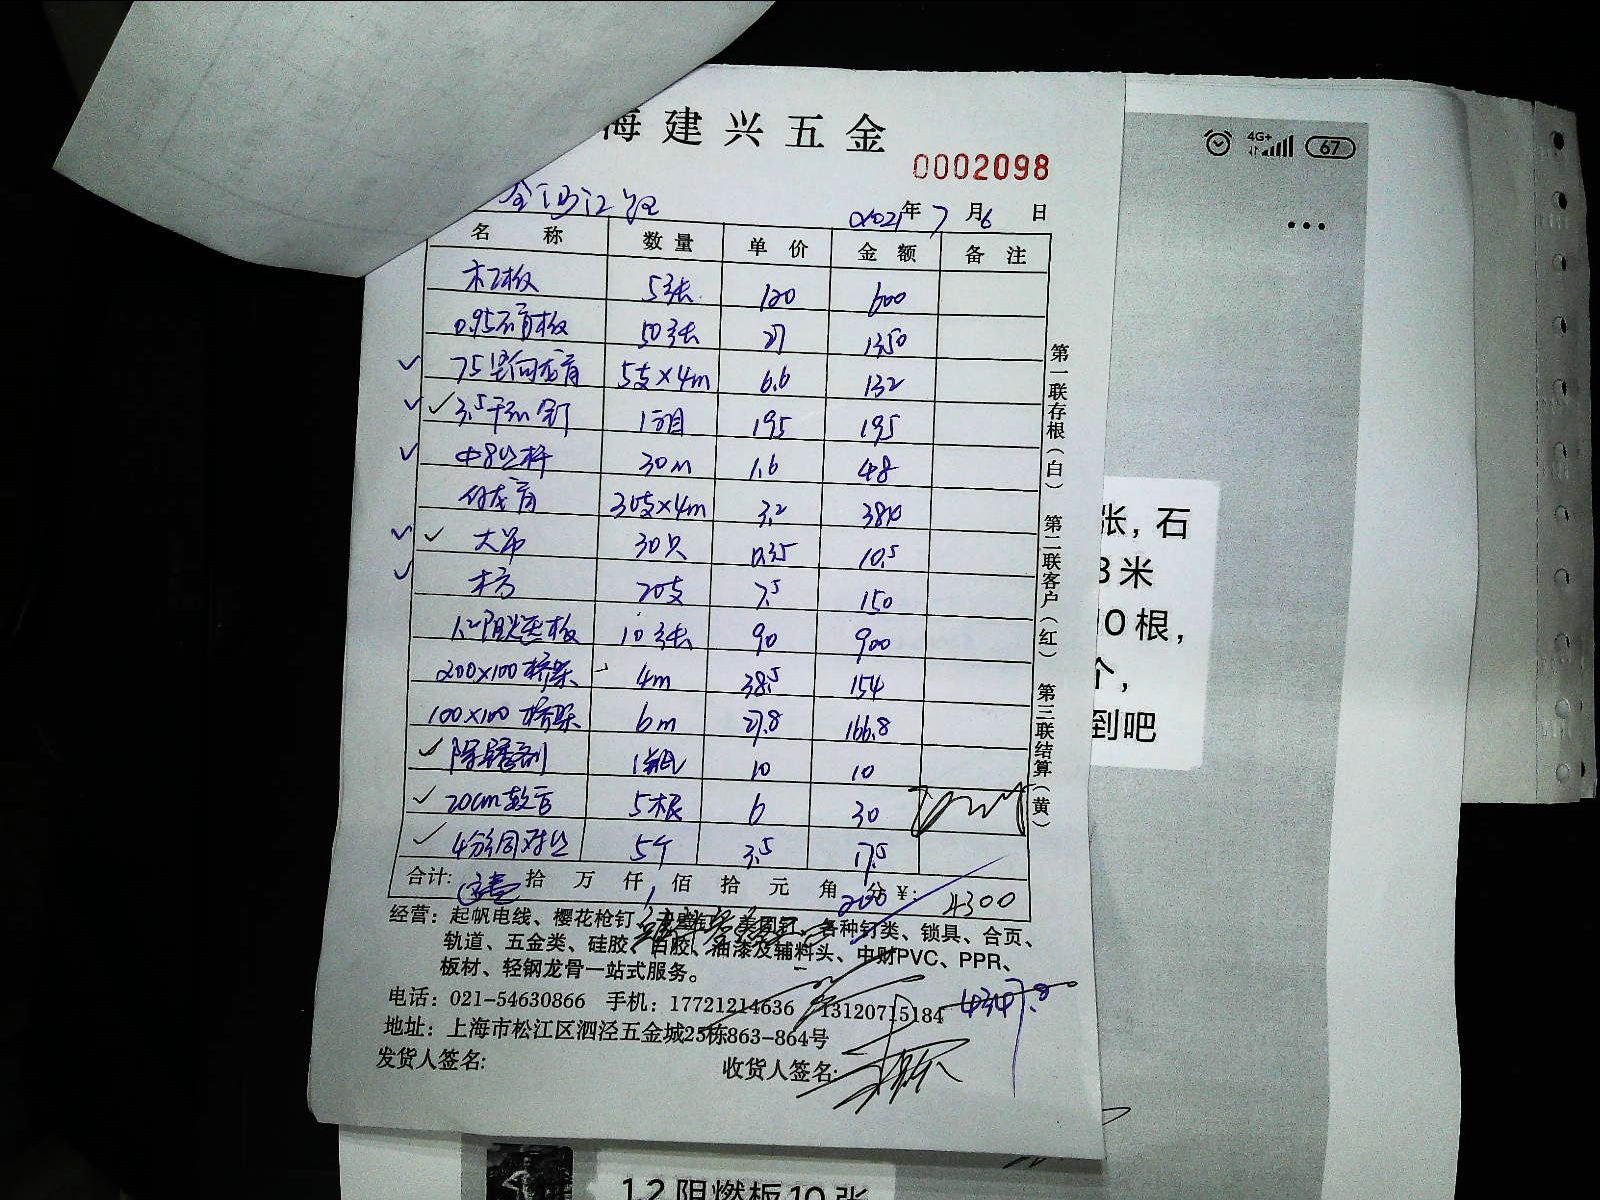 海建兴五金
0002098
2021年7月6日
名称 数量 单价 金额 备注
木工板 5张 120 600
0.95石膏板 50张 27 1350
75竖向龙骨 5支×4m 6.6 132
3.5干壁钉 1箱 195 195
Φ8丝杆 30m 1.6 48
付龙骨 30支×4m 3.2 384
大吊 30只 0.35 10.5
木方 20支 7.5 150
1.2阻燃板 10张 90 900
200×100桥架 4m 38.5 154
100×100桥架 6m 27.8 166.8
除锈剂 1瓶 10 10
20cm软管 5根 6 30
4分铜对丝 5个 3.5 17.5
合计: 拾万仟佰拾元角分¥: 4300
200
经营：起帆电线、樱花枪钉、美固钉、各种钉类、锁具、合页、
轨道、五金类、硅胶、百胶、油漆及辅料头、中财PVC、PPR、
板材、轻钢龙骨一站式服务。
电话：021-54630866 手机：17721214636 13120715184
4347.8
地址：上海市松江区泗泾五金城25栋863-864号
发货人签名: 收货人签名:
第一联存根（白） 第二联客户（红） 第三联结算（黄）
4G+ 67
张，石
3米
10根，
个，
到吧
1.2阻燃板10张